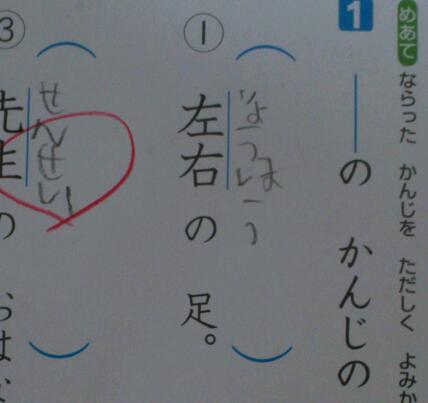 めあて ならった かんじを ただしく よみか
1 ──の かんじの
① 左右の 足。
せんせい
③ 先生の おはな